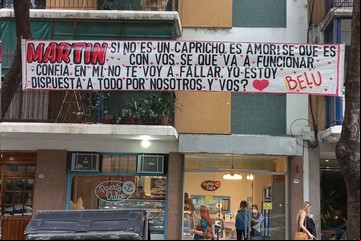 MARTIN SI NO ES UN CAPRICHO, ES AMOR! SE QUE ES
CON VOS, SE QUE VA A FUNCIONAR,
CONFIA EN MI NO TE VOY A FALLAR, YO ESTOY
DISPUESTA A TODO POR NOSOTROS Y VOS? BELU
Puerto
Dulce